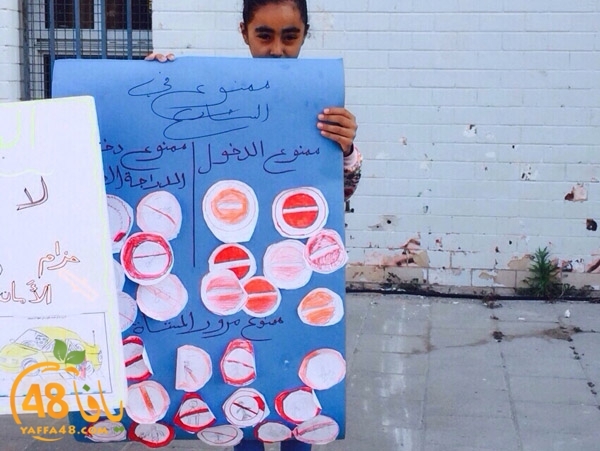 ممنوع في
الشارع
ممنوع الدخول
ممنوع
الدراجة
ممنوع مرور المشاة
لا
حزام
الأمان
يافا 48
YAFFA48.com